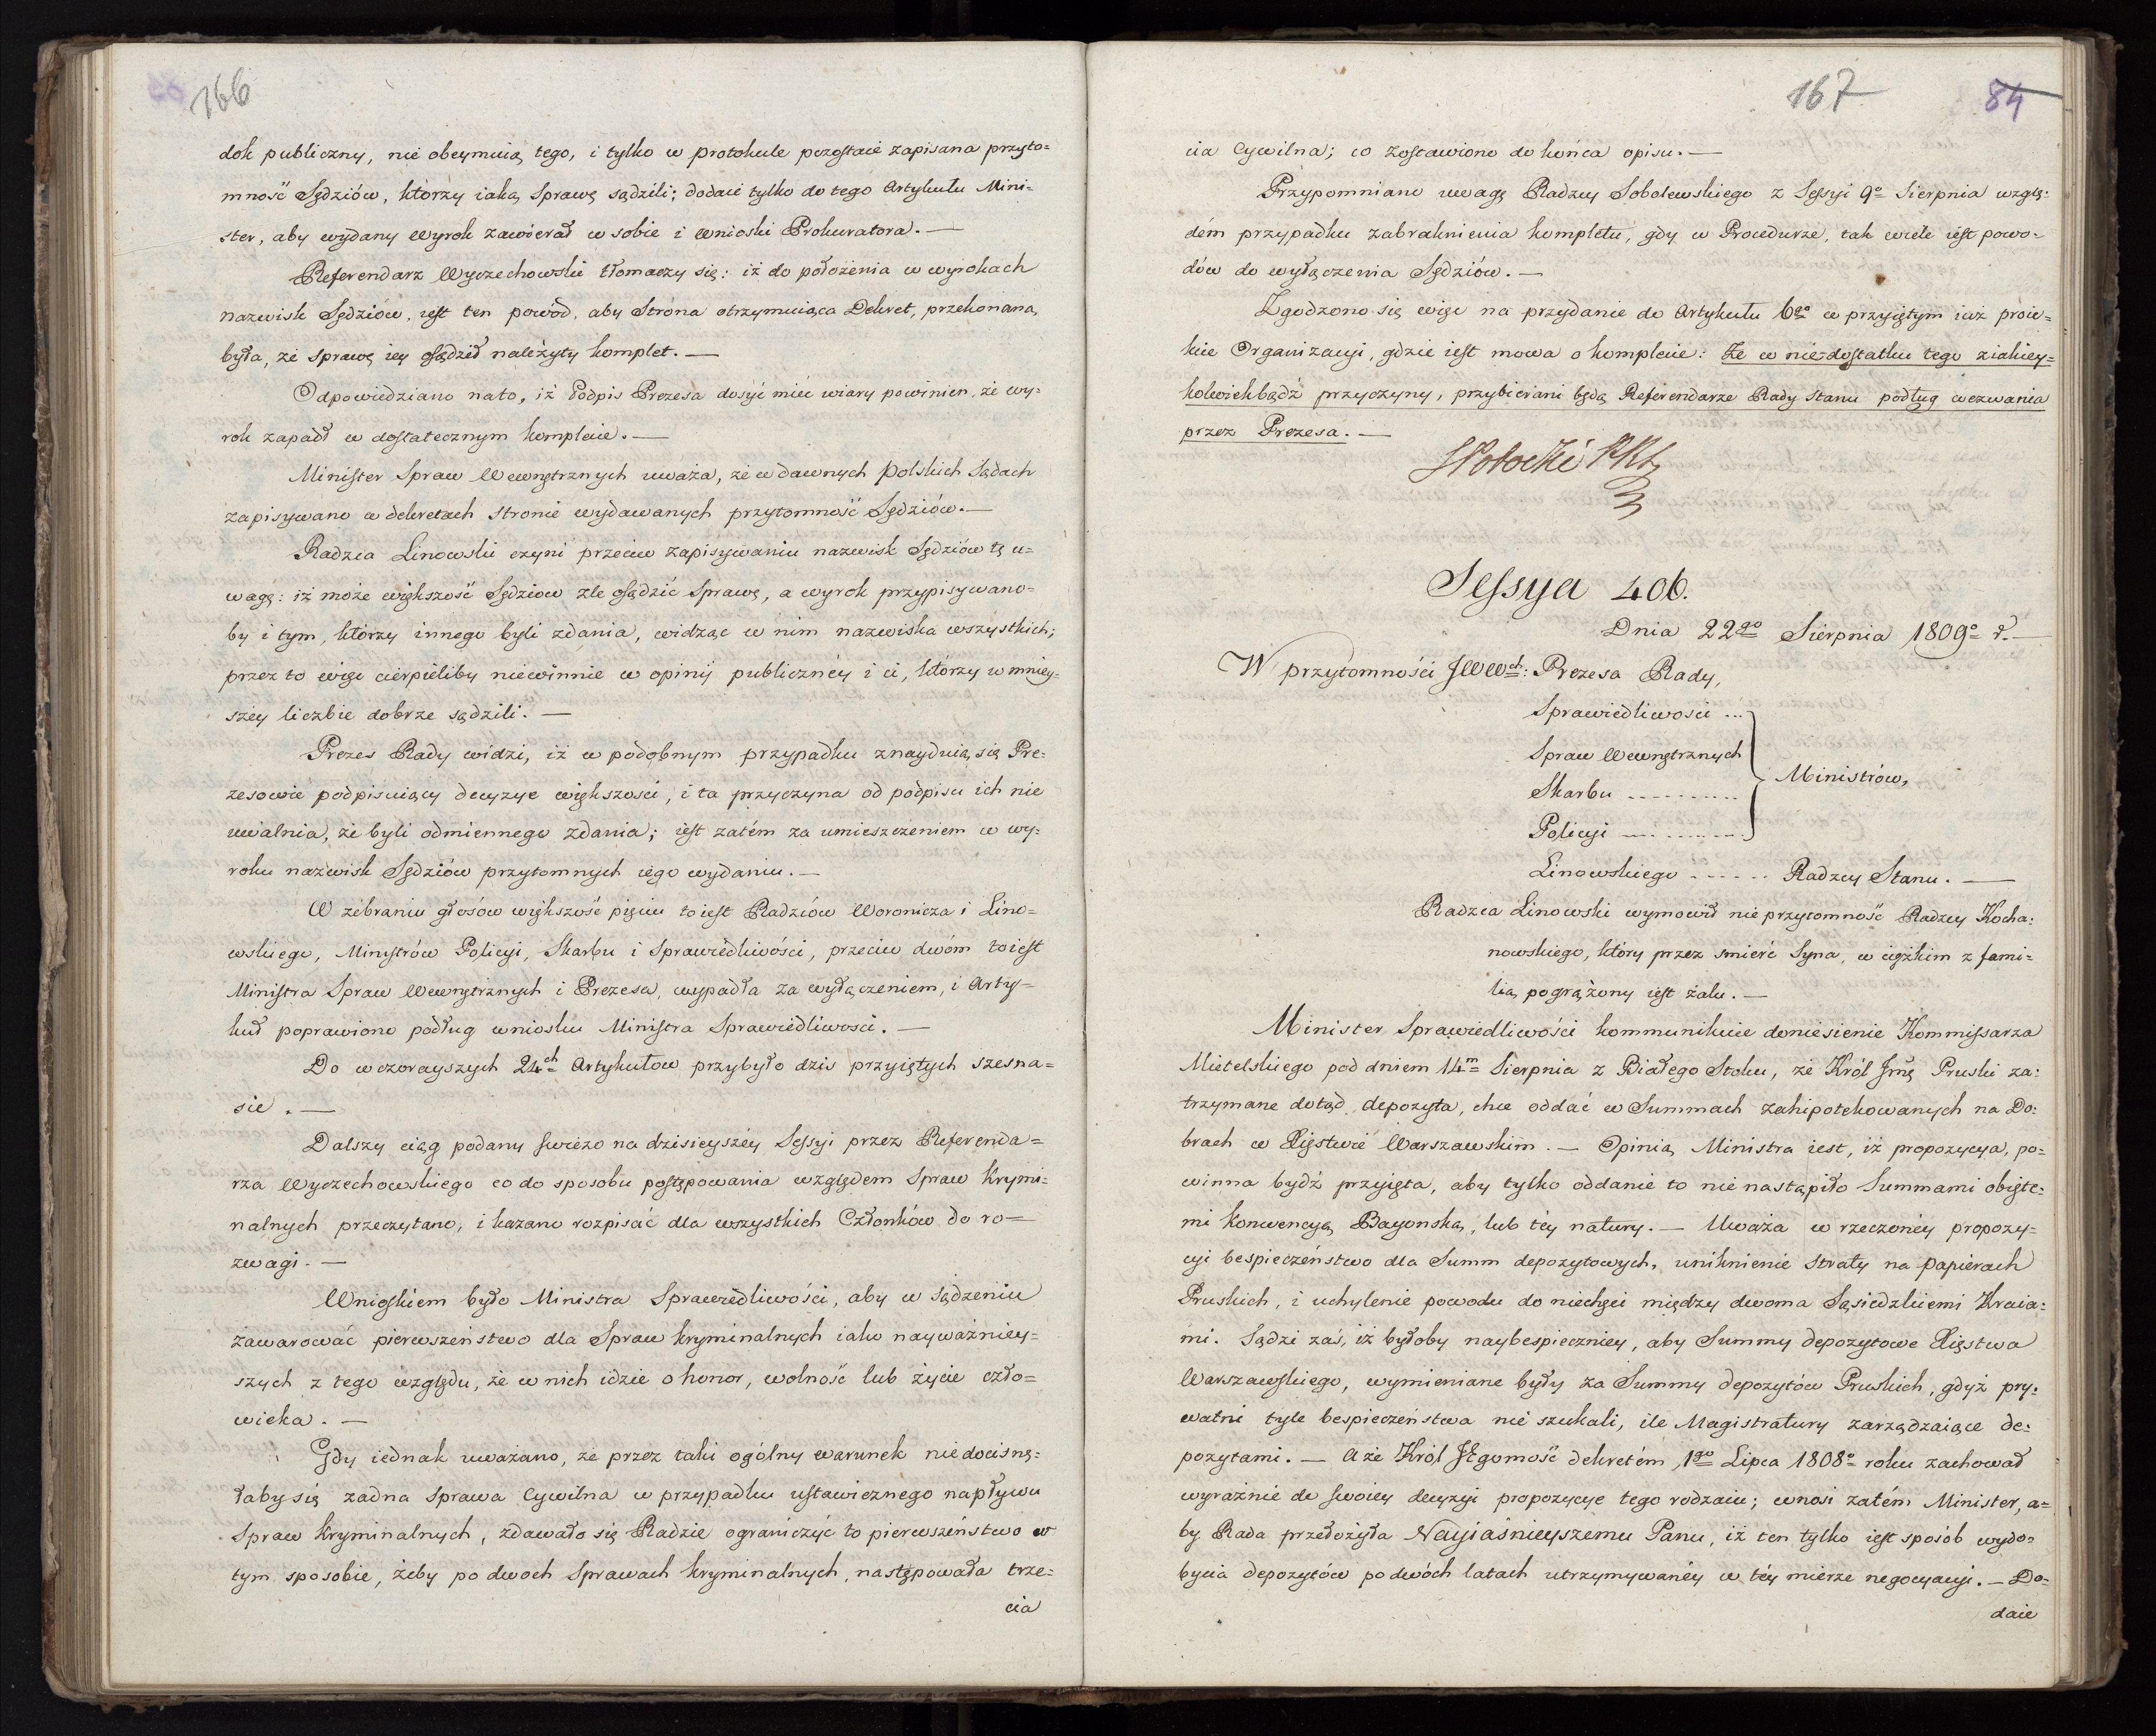 166
dok publiczny, nie obeymuią tego, i tylko w protokule pozostaie zapisana przyto=
mność Sędziów, którzy iaką Sprawę sądzili; dodaie tylko do tego Artykułu Mini=
ster, aby wydany wyrok zawierał w sobie i wnioski Prokuratora. —
Referendarz Wyczechowski tłomaczy się: iż do położenia w wyrokach
nazwisk Sędziów, iest ten powód, aby Strona otrzymuiąca Dekret, przekonaną
była, że sprawę iey osądził należyty komplet. —
Odpowiedziano na to, iż Podpis Prezesa dosyć mieć wiary powinien, że wy=
rok zapadł w dostatecznym komplecie. —
Minister Spraw Wewnętrznych uważa, że w dawnych Polskich Sądach
zapisywano w dekretach stronie wydawanych przytomność Sędziów. —
Radzca Linowski czyni przeciw zapisywaniu nazwisk Sędziów tę u=
wagę: iż może większość Sędziow źle osądzić Sprawę, a wyrok przypisywano=
by i tym, którzy innego byli zdania, widząc w nim nazwiska wszystkich;
przez to więc cierpieliby niewinnie w opinij publicznéy i ci, którzy w mniey=
széy liczbie dobrze sądzili. —
Prezes Rady widzi, iż w podobnym przypadku znayduią się Pre=
zesowie podpisuiący decyzye większości, i ta przyczyna od podpisu ich nie
uwalnia, że byli odmiennego zdania; iest zatém za umieszczeniem w wy=
roku nazwisk Sędziów przytomnych iego wydaniu. —
W zebraniu głosów większość pięciu to iest Radzców Woronicza i Lino=
wskiego, Ministrów Policyi, Skarbu i Sprawiedliwości, przeciw dwóm to iest
Ministra Spraw Wewnętrznych i Prezesa, wypadła za wyłączeniem, i Arty=
kuł poprawiono podług wniosku Ministra Sprawiedliwosci. —
Do wczorayszych 24ch Artykułow przybyło dzis przyiętych szesna=
sie. —
Dalszy ciąg podany swieżo na dzisieyszéy Sessyi przez Referenda=
rza Wyczechowskiego co do sposobu postępowania względem Spraw Krymi=
nalnych przeczytano, i kazano rozpisać dla wszystkich Członków do ro=
zwagi. —
Wnioskiem było Ministra Sprawiedliwości, aby w sądzeniu
zawarować pierwszeństwo dla Spraw kryminalnych iako nayważniey=
szych z tego względu, że w nich idzie o honor, wolność lub życie czło=
wieka. —
Gdy iednak uważano, że przez taki ogólny warunek niedocisnę=
łaby się żadna Sprawa Cywilna w przypadku ustawicznego napływu
Spraw kryminalnych, zdawało się Radzie ograniczyć to pierwszeństwo w
tym sposobie, żeby po dwoch Sprawach kryminalnych, następowała trze=
cia
167 84
cia Cywilna; co zostawiono do końca opisu. —
Przypomniano uwagę Radzcy Sobolewskiego z Sessyi 9o Sierpnia wzglę=
dém przypadku zabraknienia kompletu, gdy w Procedurze, tak wiele iest powo=
dów do wyłączenia Sędziów. —
Zgodzono się więc na przydanie do Artykułu 6go w przyiętym iuz proie=
kcie Organizacyi, gdzie iest mowa o komplecie: Że w niedostatku tego ziakiey=
kolwiekbądź przyczyny, przybierani będą Referendarze Rady Stanu podług wezwania
przez Prezesa. —
SPotocki
Sessya 406.
Dnia 22go Sierpnia 1809o r. —
W przytomności JWWch: Prezesa Rady,
Sprawiedliwosci ...
Spraw Wewnętrznych
Skarbu ........... Ministrów,
Policyi ...........
Linowskiego ...... Radzcy Stanu. —
Radzca Linowski wymowił nieprzytomność Radzcy Kocha=
nowskiego, który przez smierć Syna, w cięzkim z fami=
lią pogrążony iest żalu. —
Minister Sprawiedliwości kommunikuie doniesienie Kommissarza
Mietelskiego pod dniem 14m Sierpnia z Białego Stoku, że Król Jmć Pruski za=
trzymane dotąd depozyta, chce oddać w Summach zahipotekowanych na Do=
brach w Xięstwie Warszawskim. — Opinią Ministra iest, iż propozycya, po=
winna bydź przyięta, aby tylko oddanie to nie nastąpiło Summami obięte=
mi konwencyą Bayonską, lub téy natury. — Uważa w rzeczonéy propozy=
cyi bespieczeństwo dla Summ depozytowych, uniknienie straty na papierach
Pruskich, i uchylenie powodu do niechęci między dwoma Sąsiedzkiemi Kraia=
mi. Sądzi zaś, iż byłoby naybespieczniey, aby Summy depozytowe Xięstwa
Warszawskiego, wymieniane były za Summy depozytów Pruskich, gdyż pry=
watni tyle bespieczeństwa nie szukali, ile Magistratury zarządzaiące de=
pozytami. — A że Król Jegomość dekretém 1go Lipca 1808o roku zachował
wyraźnie do swoiey decyzyi propozycye tego rodzaiu; wnosi zatém Minister, a=
by Rada przełożyła Nayiaśnieyszemu Panu, iż ten tylko iest sposób wydo=
bycia depozytów po dwóch latach utrzymywanéy w téy mierze negocyacyi. — Do=
daie